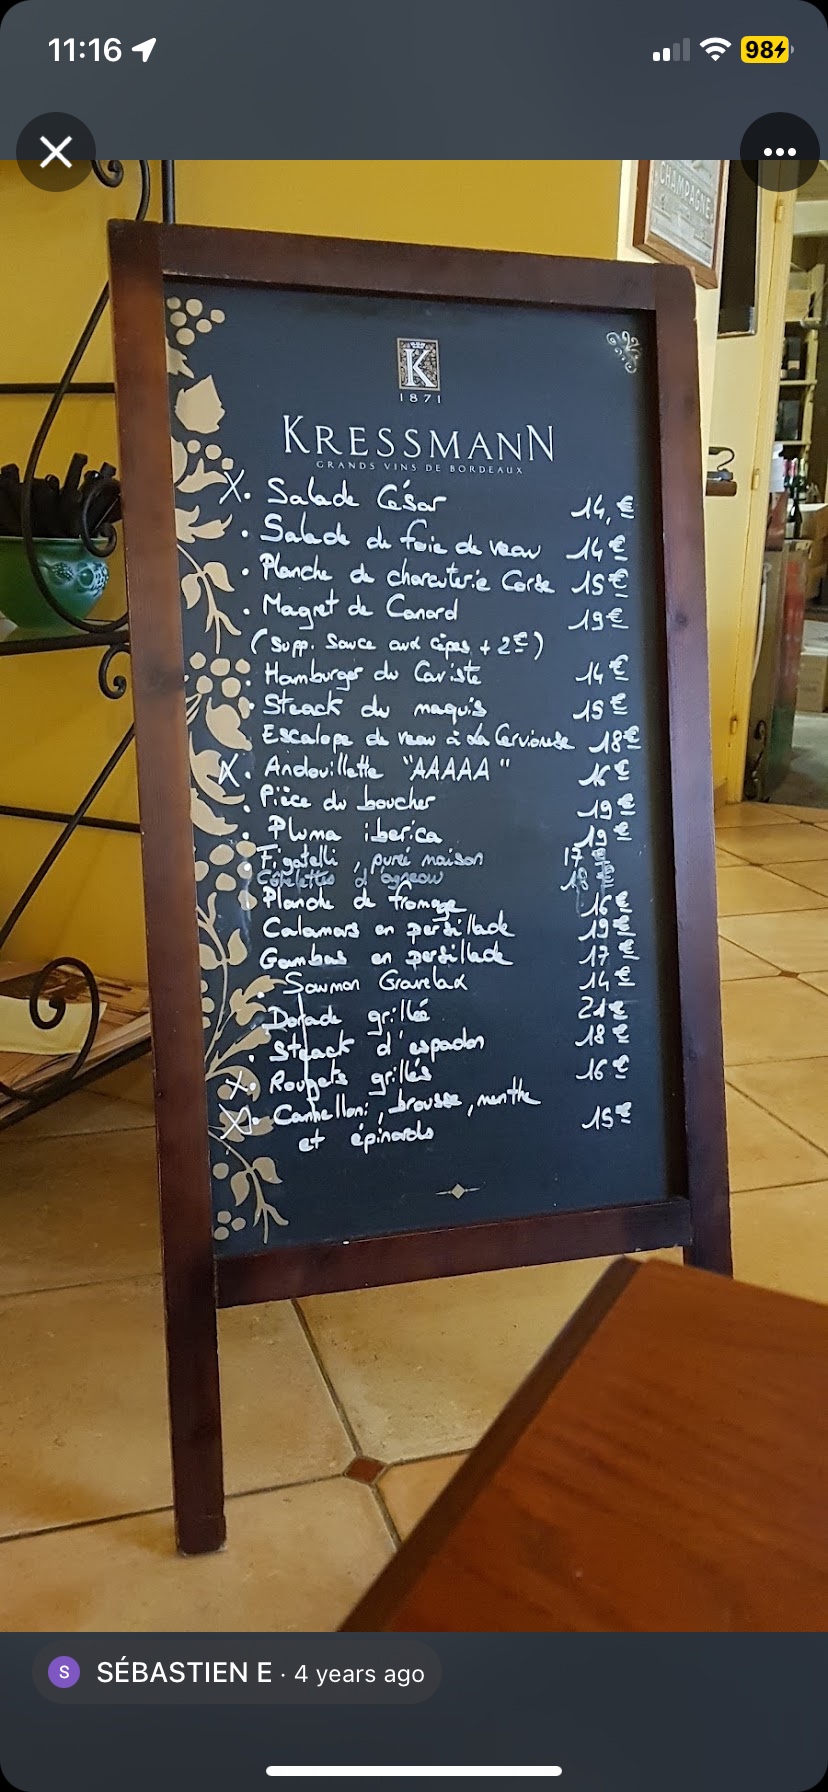 11:16
98
CHAMPAGNE
K
1871
KRESSMANN
GRANDS VINS DE BORDEAUX
X. Salade César 14,€
. Salade de foie de veau 14€
. Planche de charcuterie Corse 15€
. Magret de Canard 19€
(Supp. Sauce aux cèpes + 2€)
. Hamburger du Caviste 14€
. Steack du maquis 15€
Escalope de veau à la Cervionese 18€
X. Andouillette "AAAAA" 16€
. Pièce du boucher 19€
. Pluma iberica 19€
. Figatelli, puré maison 17€
Côtelettes d'agneau 18€
Planche de fromage 16€
Calamars en persillade 19€
Gambas en persillade 17€
. Saumon Gravelax 14€
. Dorade grillé 21€
. Steack d'espadon 18€
X. Rougets grillés 16€
X. Cannelloni, brousse, menthe 15€
et épinards
S SÉBASTIEN E · 4 years ago